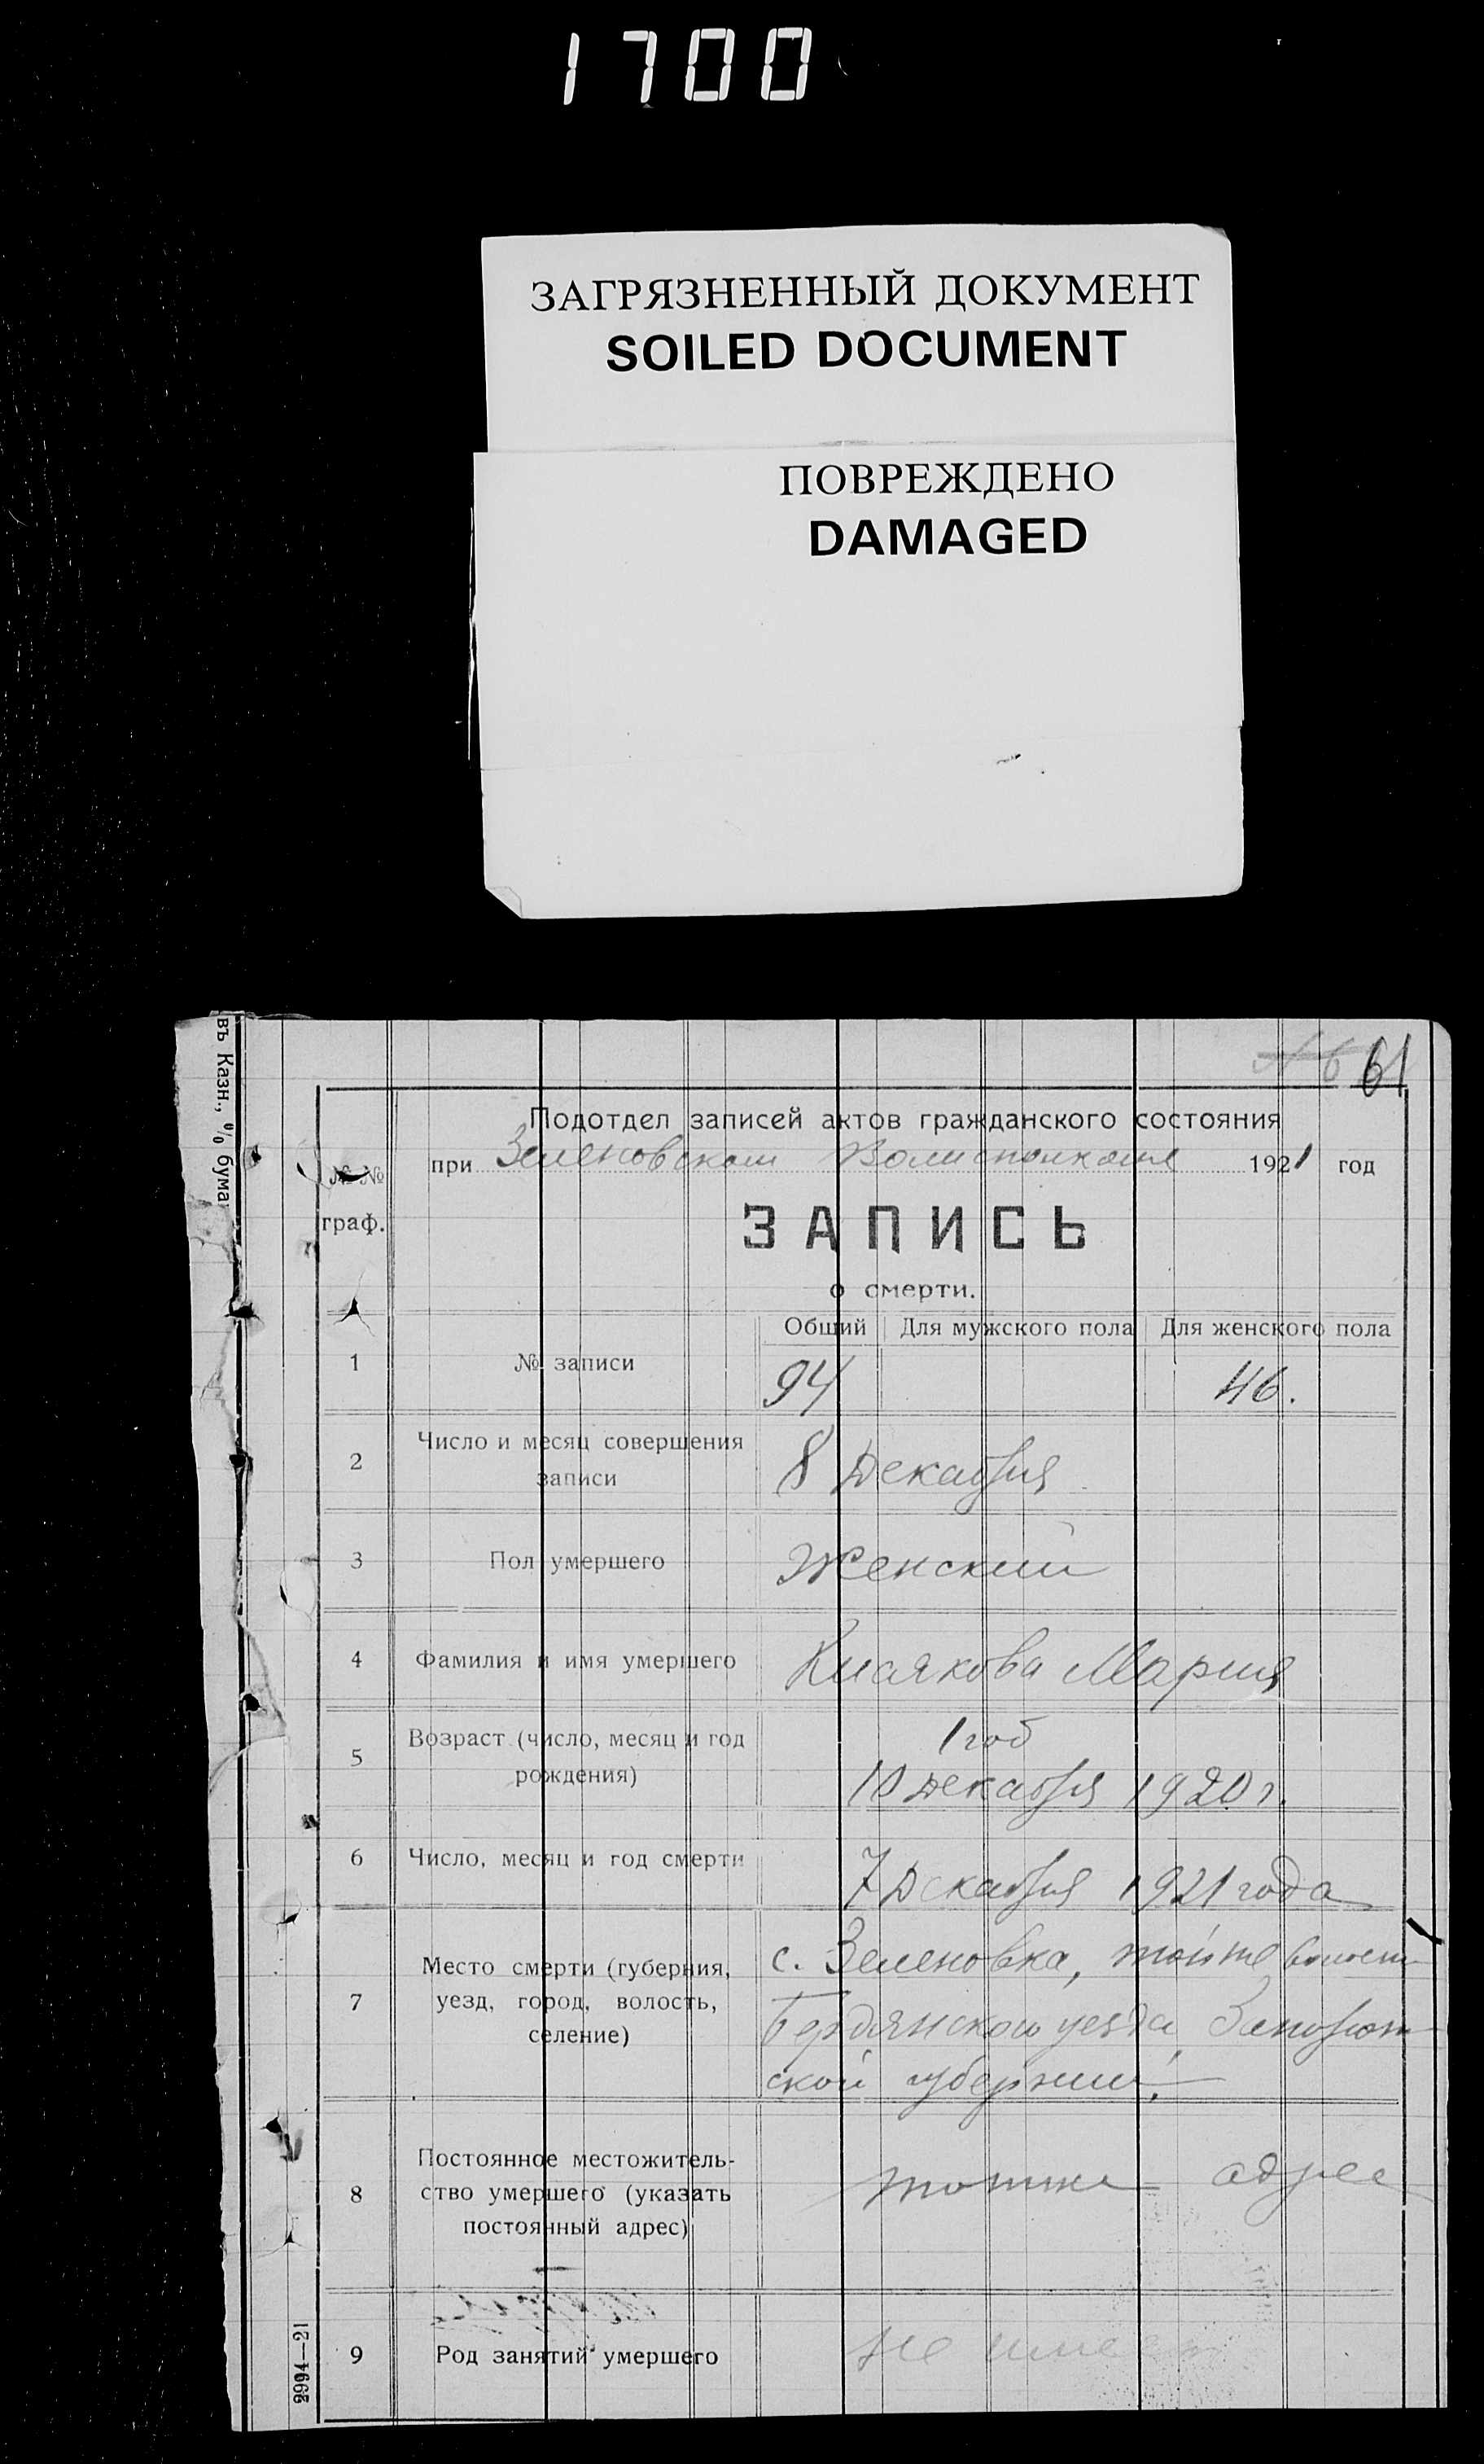 1700
ЗАГРЯЗНЕННЫЙ ДОКУМЕНТ
SOILED DOCUMENT
ПОВРЕЖДЕНО
DAMAGED
61
въ Казн., % бума
Подотдел записей актов гражданского состояния
при Зеленовском Волисполкоме 1921 год
№№ граф.
ЗАПИСЬ
о смерти.
Общий Для мужского пола Для женского пола
1 № записи 94 46.
2 Число и месяц совершения
записи 8 Декабря
3 Пол умершего Женский
4 Фамилия и имя умершего Мария
5 Возраст (число, месяц и год
рождения) 1 год
10 Декабря 1920 г.
6 Число, месяц и год смерти 7 Декабря 1921 года
7 Место смерти (губерния,
уезд, город, волость,
селение) с. Зеленовка, той же волости
Бердянского уезда Запорож
ской губернии.
8 Постоянное местожитель-
ство умершего (указать
постоянный адрес) тот же адрес
9 Род занятий умершего не имеет
2994—21